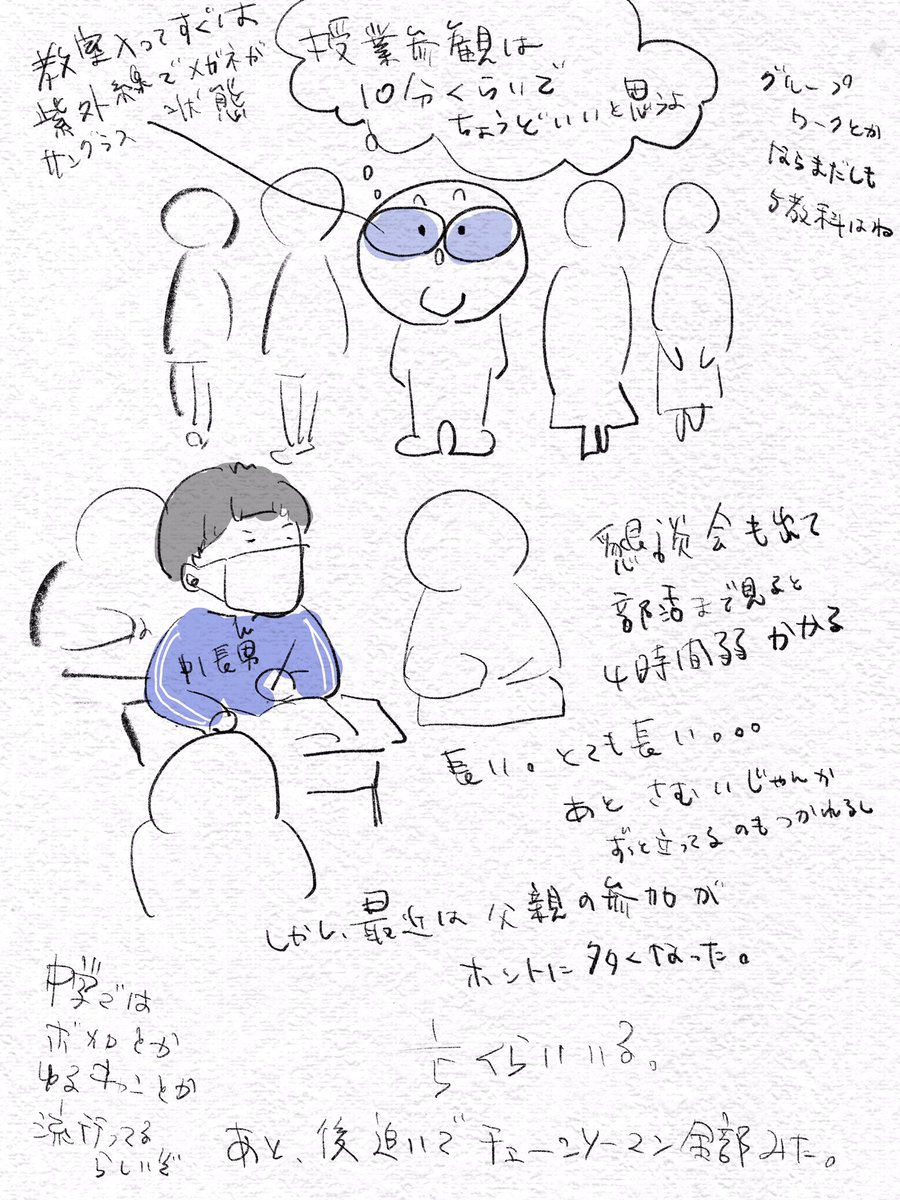 教室入ってすぐは
紫外線でメガネが
サングラス状態
授業参観は
10分くらいで
ちょうどいいと思うよ
グループ
ワークとか
ならまだしも
5教科はね
中1長男
懇談会も出て
部活まで見ると
4時間弱かかる
長い。とても長い。。。
あと さむいじゃんか
ずっと立ってるのもつかれるし
しかし、最近は父親の参加が
ホントに多くなった。
1/5くらいいる。
中学では
ボカロとか
ゆるキャラとか
流行ってる
らしいぞ
あと、後追いでチェーンソーマン全部みた。